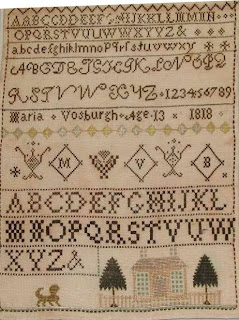 AABCDDEEFGHIJKKLLMMNN
OPQRSTVUUWWXYZ&
abcdefghiklmnoPqrſstuvwxyz
ABCDEFGHIJKLNOPQ
RSTVWXYZ 123456789
Maria Vosburgh Age 13 x 1818
M V B
ABCDEFGHIJKL
MNOPQRSTUVW
XYZ&